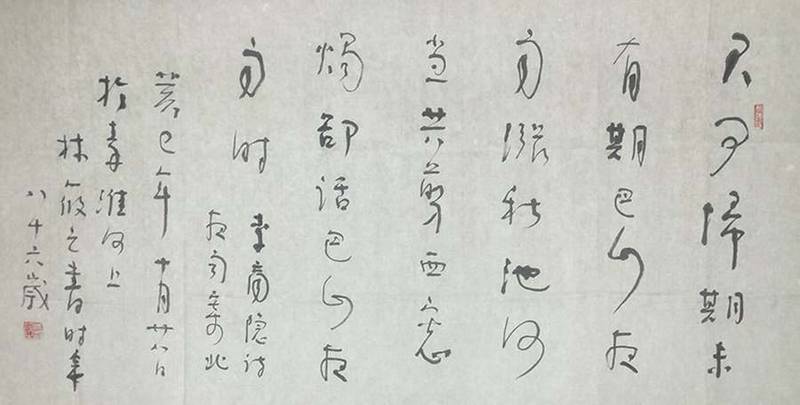 君问歸期未
有期巴山夜
雨漲秋池何
当共剪西窗
燭卻話巴山夜
雨时
李商隐诗
夜雨寄北
癸巳年十月廿八日
於秦淮河上
林筱之書时年
八十六歲